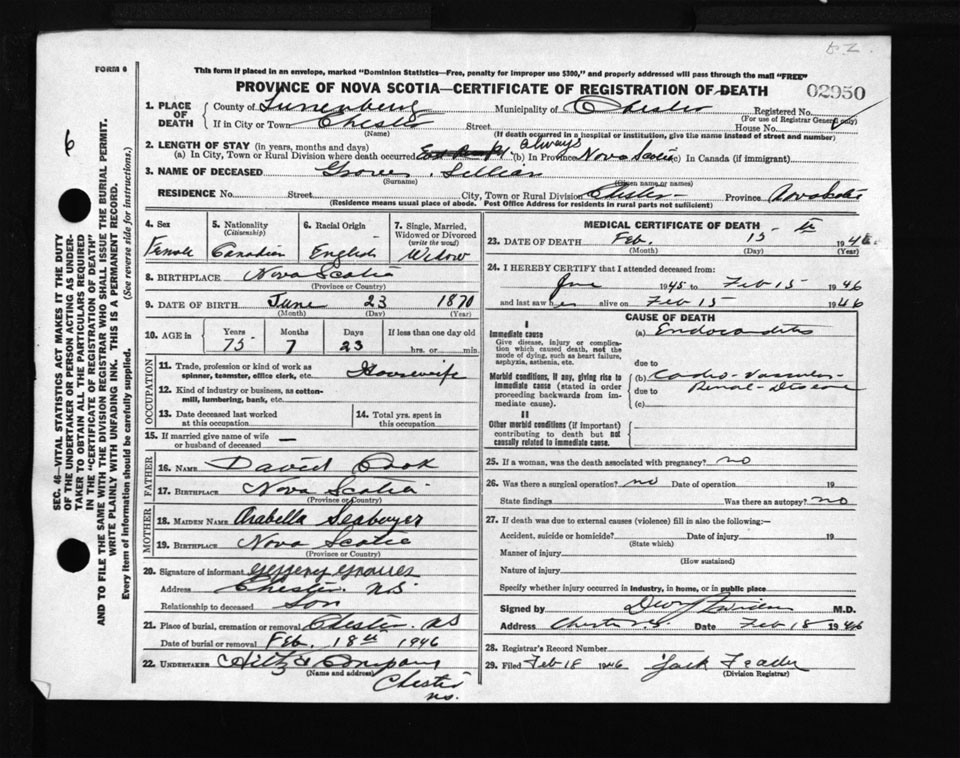 62.
FORM 6
This form if placed in an envelope, marked "Dominion Statistics—Free, penalty for improper use $300," and properly addressed will pass through the mail "FREE"
PROVINCE OF NOVA SCOTIA—CERTIFICATE OF REGISTRATION OF DEATH
02950
1. PLACE OF DEATH
County of Lunenburg Municipality of Chester Registered No.
(For use of Registrar General only)
If in City or Town Chester Street House No.
(Name) (If death occurred in a hospital or institution, give the name instead of street and number)
2. LENGTH OF STAY (in years, months and days)
(a) In City, Town or Rural Division where death occurred always (b) In Province Nova Scotia (c) In Canada (if immigrant)
3. NAME OF DECEASED Lillian
(Surname) (Given name or names)
RESIDENCE No. Street City, Town or Rural Division Chester Province Nova Scotia
(Residence means usual place of abode. Post Office Address for residents in rural parts not sufficient)
4. Sex Female
5. Nationality (Citizenship) Canadian
6. Racial Origin English
7. Single, Married, Widowed or Divorced (write the word) Widow
8. BIRTHPLACE Nova Scotia
(Province or Country)
9. DATE OF BIRTH June 23 1870
(Month) (Day) (Year)
10. AGE in Years Months Days If less than one day old
75 7 23 hrs. or min.
OCCUPATION
11. Trade, profession or kind of work as spinner, teamster, office clerk, etc. Housewife
12. Kind of industry or business, as cotton-mill, lumbering, bank, etc.
13. Date deceased last worked at this occupation
14. Total yrs. spent in this occupation
15. If married give name of wife or husband of deceased —
FATHER
16. NAME David Cook
17. BIRTHPLACE Nova Scotia
(Province or Country)
MOTHER
18. MAIDEN NAME Arabella Seaboyer
19. BIRTHPLACE Nova Scotia
(Province or Country)
20. Signature of informant
Address Chester N.S
Relationship to deceased Son
21. Place of burial, cremation or removal Chester NS
Date of burial or removal Feb. 18th 1946
22. UNDERTAKER Hiltz & Company
(Name and address) Chester
N.S.
MEDICAL CERTIFICATE OF DEATH
23. DATE OF DEATH Feb. 15th 1946
(Month) (Day) (Year)
24. I HEREBY CERTIFY that I attended deceased from:
1945 to Feb 15 1946
and last saw her alive on Feb 15 1946
CAUSE OF DEATH
I
Immediate cause (a) Endocarditis
Give disease, injury or complication which caused death, not the mode of dying, such as heart failure, asphyxia, asthenia, etc.
due to
Morbid conditions, if any, giving rise to immediate cause (stated in order proceeding backwards from immediate cause). (b) Cardio-Vascular-
due to Renal-Disease
(c)
II
Other morbid conditions (if important) contributing to death but not causally related to immediate cause.
25. If a woman, was the death associated with pregnancy? no
26. Was there a surgical operation? no Date of operation 19
State findings Was there an autopsy? no
27. If death was due to external causes (violence) fill in also the following:—
Accident, suicide or homicide? Date of injury 19
(State which)
Manner of injury
(How sustained)
Nature of injury
Specify whether injury occurred in industry, in home, or in public place
Signed by M.D.
Address Chester N.S. Date Feb 18 1946
28. Registrar's Record Number
29. Filed Feb 18 1946 Jack
(Division Registrar)
6
SEC. 46—VITAL STATISTICS ACT MAKES IT THE DUTY
OF THE UNDERTAKER OR PERSON ACTING AS UNDER-
TAKER TO OBTAIN ALL THE PARTICULARS REQUIRED
IN THE "CERTIFICATE OF REGISTRATION OF DEATH"
AND TO FILE THE SAME WITH THE DIVISION REGISTRAR WHO SHALL ISSUE THE BURIAL PERMIT.
WRITE PLAINLY WITH UNFADING INK. THIS IS A PERMANENT RECORD.
Every item of information should be carefully supplied. (See reverse side for instructions.)